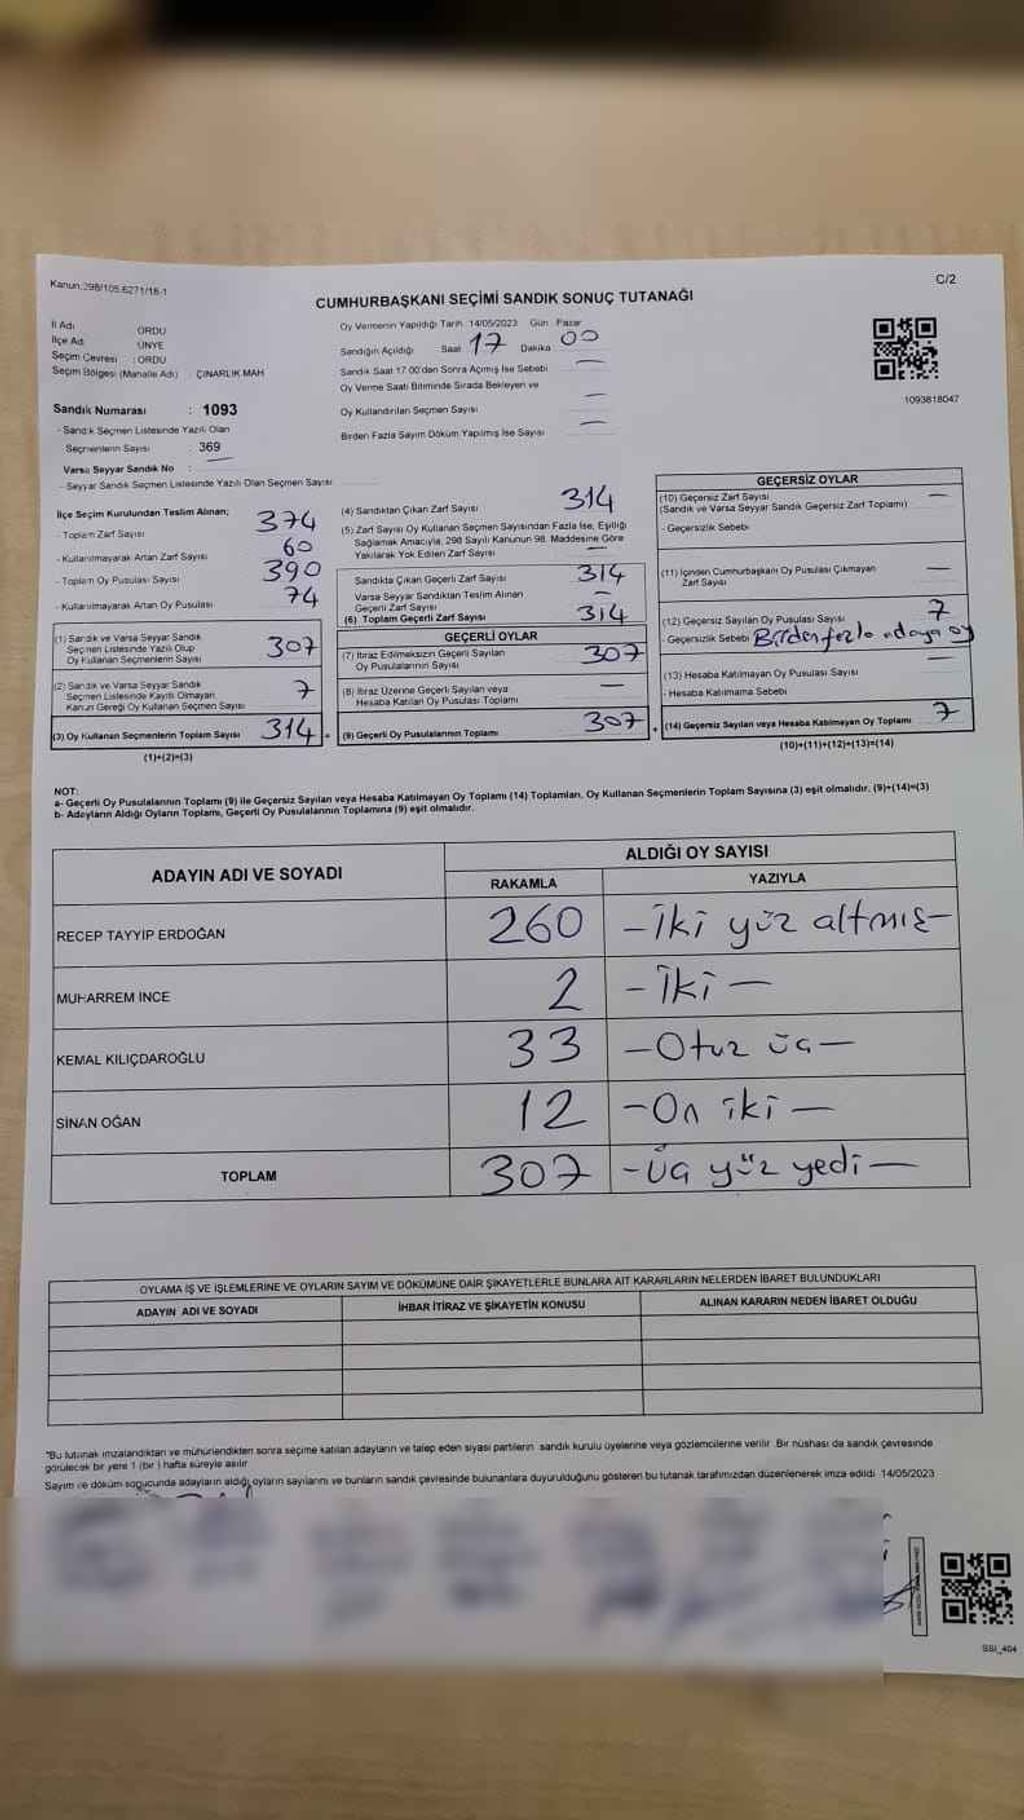 Kanun:298/105,6271/18-1
C/2
CUMHURBAŞKANI SEÇİMİ SANDIK SONUÇ TUTANAĞI
İl Adı : ORDU
İlçe Adı : ÜNYE
Seçim Çevresi : ORDU
Seçim Bölgesi (Mahalle Adı) : ÇINARLIK MAH
Sandık Numarası : 1093
- Sandık Seçmen Listesinde Yazılı Olan
Seçmenlerin Sayısı : 369
Varsa Seyyar Sandık No : —
- Seyyar Sandık Seçmen Listesinde Yazılı Olan Seçmen Sayısı
Oy Vermenin Yapıldığı Tarih: 14/05/2023 Gün: Pazar
Sandığın Açıldığı Saat 17 Dakika 00
Sandık Saat 17.00'den Sonra Açılmış İse Sebebi —
Oy Verme Saati Bitiminde Sırada Bekleyen ve
Oy Kullandırılan Seçmen Sayısı —
Birden Fazla Sayım Döküm Yapılmış İse Sayısı —
1093818047
İlçe Seçim Kurulundan Teslim Alınan;
- Toplam Zarf Sayısı 374
- Kullanılmayarak Artan Zarf Sayısı 60
- Toplam Oy Pusulası Sayısı 390
- Kullanılmayarak Artan Oy Pusulası 74
(1) Sandık ve Varsa Seyyar Sandık
Seçmen Listesinde Yazılı Olup
Oy Kullanan Seçmenlerin Sayısı 307
(2) Sandık ve Varsa Seyyar Sandık
Seçmen Listesinde Kayıtlı Olmayan
Kanun Gereği Oy Kullanan Seçmen Sayısı 7
(3) Oy Kullanan Seçmenlerin Toplam Sayısı 314
(1)+(2)=(3)
(4) Sandıktan Çıkan Zarf Sayısı 314
(5) Zarf Sayısı Oy Kullanan Seçmen Sayısından Fazla İse, Eşitliği
Sağlamak Amacıyla, 298 Sayılı Kanunun 98. Maddesine Göre
Yakılarak Yok Edilen Zarf Sayısı —
Sandıkta Çıkan Geçerli Zarf Sayısı 314
Varsa Seyyar Sandıktan Teslim Alınan
Geçerli Zarf Sayısı —
(6) Toplam Geçerli Zarf Sayısı 314
GEÇERLİ OYLAR
(7) İtiraz Edilmeksizin Geçerli Sayılan
Oy Pusulalarının Sayısı 307
(8) İtiraz Üzerine Geçerli Sayılan veya
Hesaba Katılan Oy Pusulası Toplamı —
(9) Geçerli Oy Pusulalarının Toplamı 307
GEÇERSİZ OYLAR
(10) Geçersiz Zarf Sayısı —
(Sandık ve Varsa Seyyar Sandık Geçersiz Zarf Toplamı)
- Geçersizlik Sebebi
(11) İçinden Cumhurbaşkanı Oy Pusulası Çıkmayan
Zarf Sayısı —
(12) Geçersiz Sayılan Oy Pusulası Sayısı 7
- Geçersizlik Sebebi Birden fazla adaya oy
(13) Hesaba Katılmayan Oy Pusulası Sayısı —
- Hesaba Katılmama Sebebi
(14) Geçersiz Sayılan veya Hesaba Katılmayan Oy Toplamı 7
(10)+(11)+(12)+(13)=(14)
NOT:
a- Geçerli Oy Pusulalarının Toplamı (9) ile Geçersiz Sayılan veya Hesaba Katılmayan Oy Toplamı (14) Toplamları, Oy Kullanan Seçmenlerin Toplam Sayısına (3) eşit olmalıdır. (9)+(14)=(3)
b- Adayların Aldığı Oyların Toplamı, Geçerli Oy Pusulalarının Toplamına (9) eşit olmalıdır.
ADAYIN ADI VE SOYADI
ALDIĞI OY SAYISI
RAKAMLA YAZIYLA
RECEP TAYYİP ERDOĞAN 260 – İki yüz altmış –
MUHARREM İNCE 2 – İki –
KEMAL KILIÇDAROĞLU 33 – Otuz üç –
SİNAN OĞAN 12 – On iki –
TOPLAM 307 – Üç yüz yedi –
OYLAMA İŞ VE İŞLEMLERİNE VE OYLARIN SAYIM VE DÖKÜMÜNE DAİR ŞİKAYETLERLE BUNLARA AİT KARARLARIN NELERDEN İBARET BULUNDUKLARI
ADAYIN ADI VE SOYADI İHBAR İTİRAZ VE ŞİKAYETİN KONUSU ALINAN KARARIN NEDEN İBARET OLDUĞU
"Bu tutanak imzalandıktan ve mühürlendikten sonra seçime katılan adayların ve talep eden siyasi partilerin sandık kurulu üyelerine veya gözlemcilerine verilir. Bir nüshası da sandık çevresinde
görülecek bir yere 1 (bir) hafta süreyle asılır.
Sayım ve döküm sonucunda adayların aldığı oyların sayılarını ve bunların sandık çevresinde bulunanlara duyurulduğunu gösteren bu tutanak tarafımızdan düzenlenerek imza edildi. 14/05/2023
SSI_404